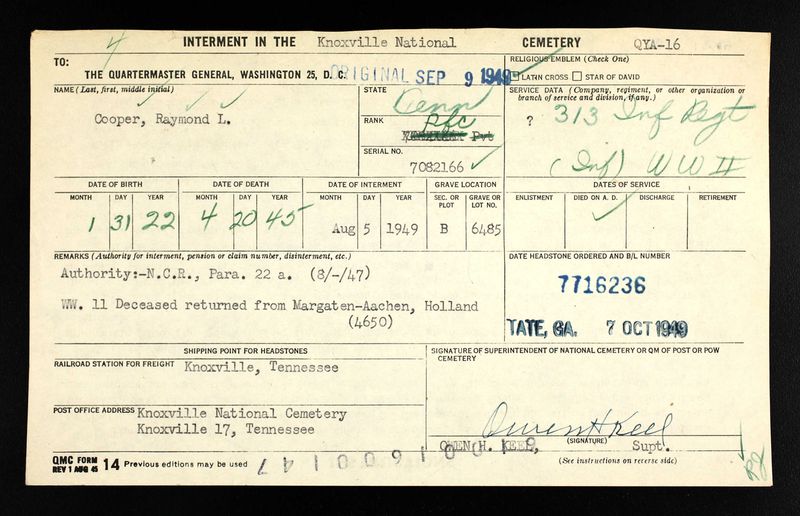 4
INTERMENT IN THE Knoxville National CEMETERY QYA-16
TO:
THE QUARTERMASTER GENERAL, WASHINGTON 25, D. C.
ORIGINAL SEP 9 1949
RELIGIOUS EMBLEM (Check One)
LATIN CROSS STAR OF DAVID
NAME (Last, first, middle initial)
Cooper, Raymond L.
STATE
Tenn
RANK
Pfc
Pvt
SERIAL NO.
7082166
SERVICE DATA (Company, regiment, or other organization or branch of service and division, if any.)
? 313 Inf Regt
(Inf) WW II
DATE OF BIRTH DATE OF DEATH DATE OF INTERMENT GRAVE LOCATION DATES OF SERVICE
MONTH DAY YEAR MONTH DAY YEAR MONTH DAY YEAR SEC. OR PLOT GRAVE OR LOT NO. ENLISTMENT DIED ON A. D. DISCHARGE RETIREMENT
1 31 22 4 20 45 Aug 5 1949 B 6485
REMARKS (Authority for interment, pension or claim number, disinterment, etc.)
Authority:-N.C.R., Para. 22 a. (8/-/47)
WW. 11 Deceased returned from Margaten-Aachen, Holland
(4650)
DATE HEADSTONE ORDERED AND B/L NUMBER
7716236
TATE, GA. 7 OCT 1949
SHIPPING POINT FOR HEADSTONES
RAILROAD STATION FOR FREIGHT Knoxville, Tennessee
POST OFFICE ADDRESS Knoxville National Cemetery
Knoxville 17, Tennessee
SIGNATURE OF SUPERINTENDENT OF NATIONAL CEMETERY OR QM OF POST OR POW CEMETERY
Owen H Keel
OWEN H. KEEL, (SIGNATURE) Supt.
(See instructions on reverse side)
QMC FORM
REV 1 AUG 45 14 Previous editions may be used